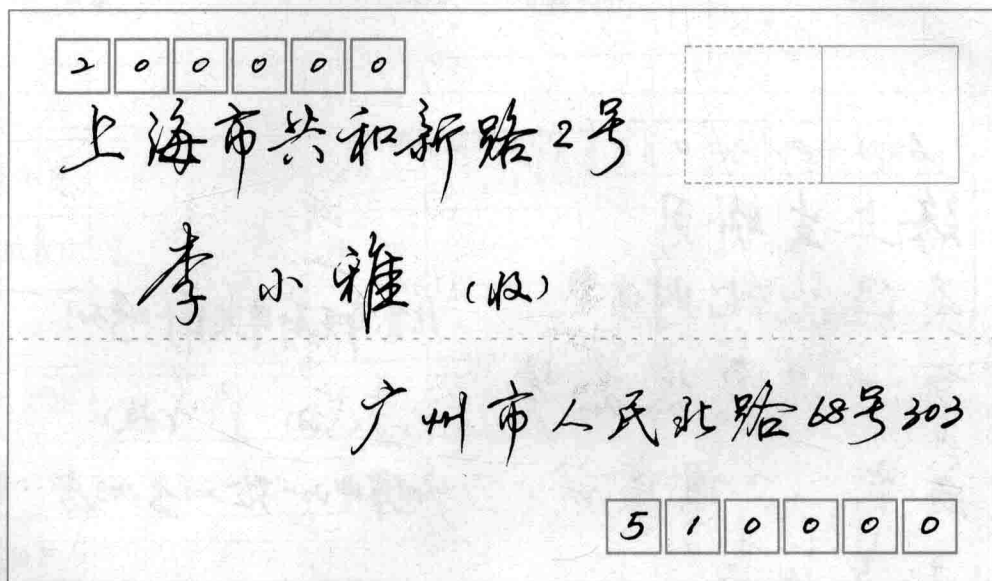 200000
上海市共和新路2号
李小雅（收）
广州市人民北路68号303
510000